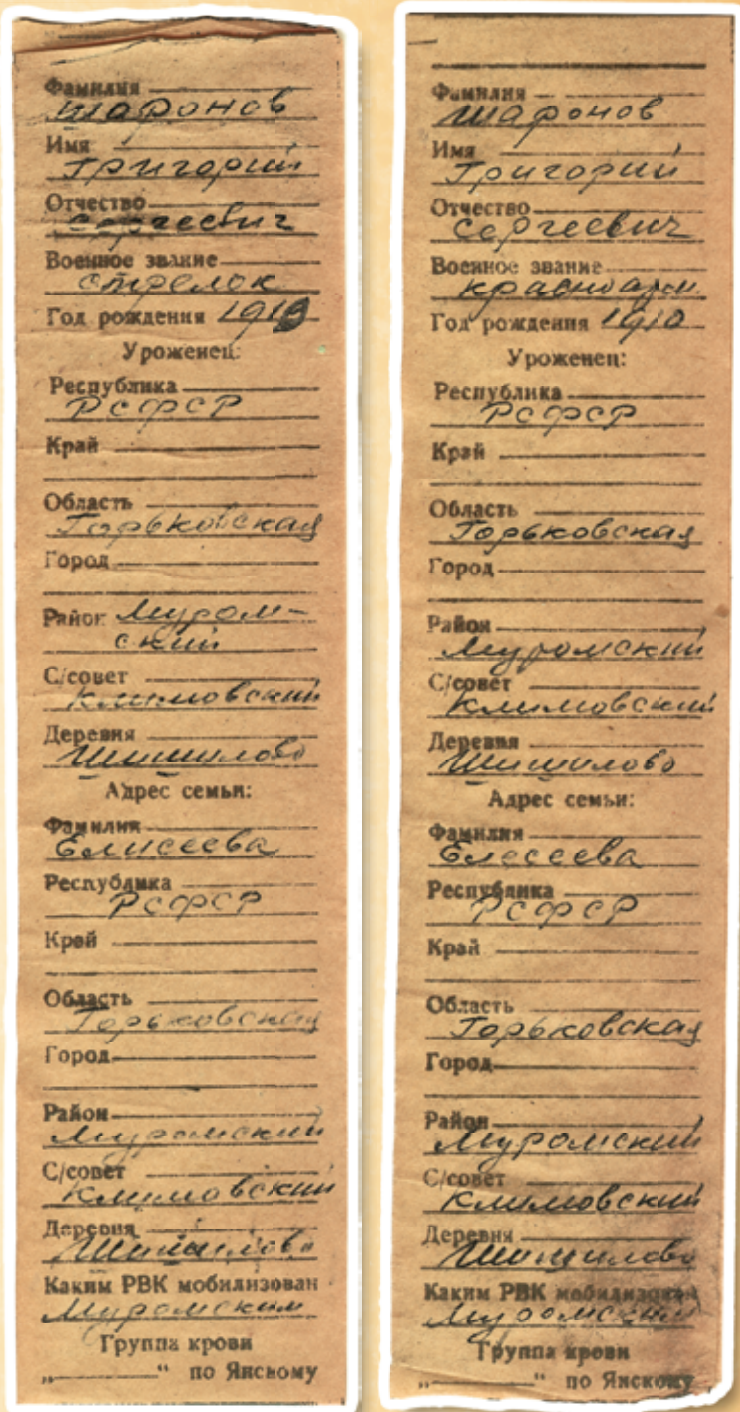 Фамилия
Шафонов
Имя
Григорий
Отчество
Сергеевич
Военное звание
стрелок
Год рождения 1910
Уроженец:
Республика
РСФСР
Край
Область
Горьковская
Город
Район Муром-
ский
С/совет
Климовский
Деревня
Шишилово
Адрес семьи:
Фамилия
Елисеева
Республика
РСФСР
Край
Область
Горьковская
Город
Район
Муромский
С/совет
Климовский
Деревня
Шишилово
Каким РВК мобилизован
Муромским
Группа крови
„ “ по Янскому
Фамилия
Шафонов
Имя
Григорий
Отчество
Сергеевич
Военное звание
красноарм.
Год рождения 1910
Уроженец:
Республика
РСФСР
Край
Область
Горьковская
Город
Район
Муромский
С/совет
Климовский
Деревня
Шишилово
Адрес семьи:
Фамилия
Елесеева
Республика
РСФСР
Край
Область
Горьковская
Город
Район
Муромский
С/совет
Климовский
Деревня
Шишилово
Каким РВК мобилизован
Муромским
Группа крови
„ “ по Янскому